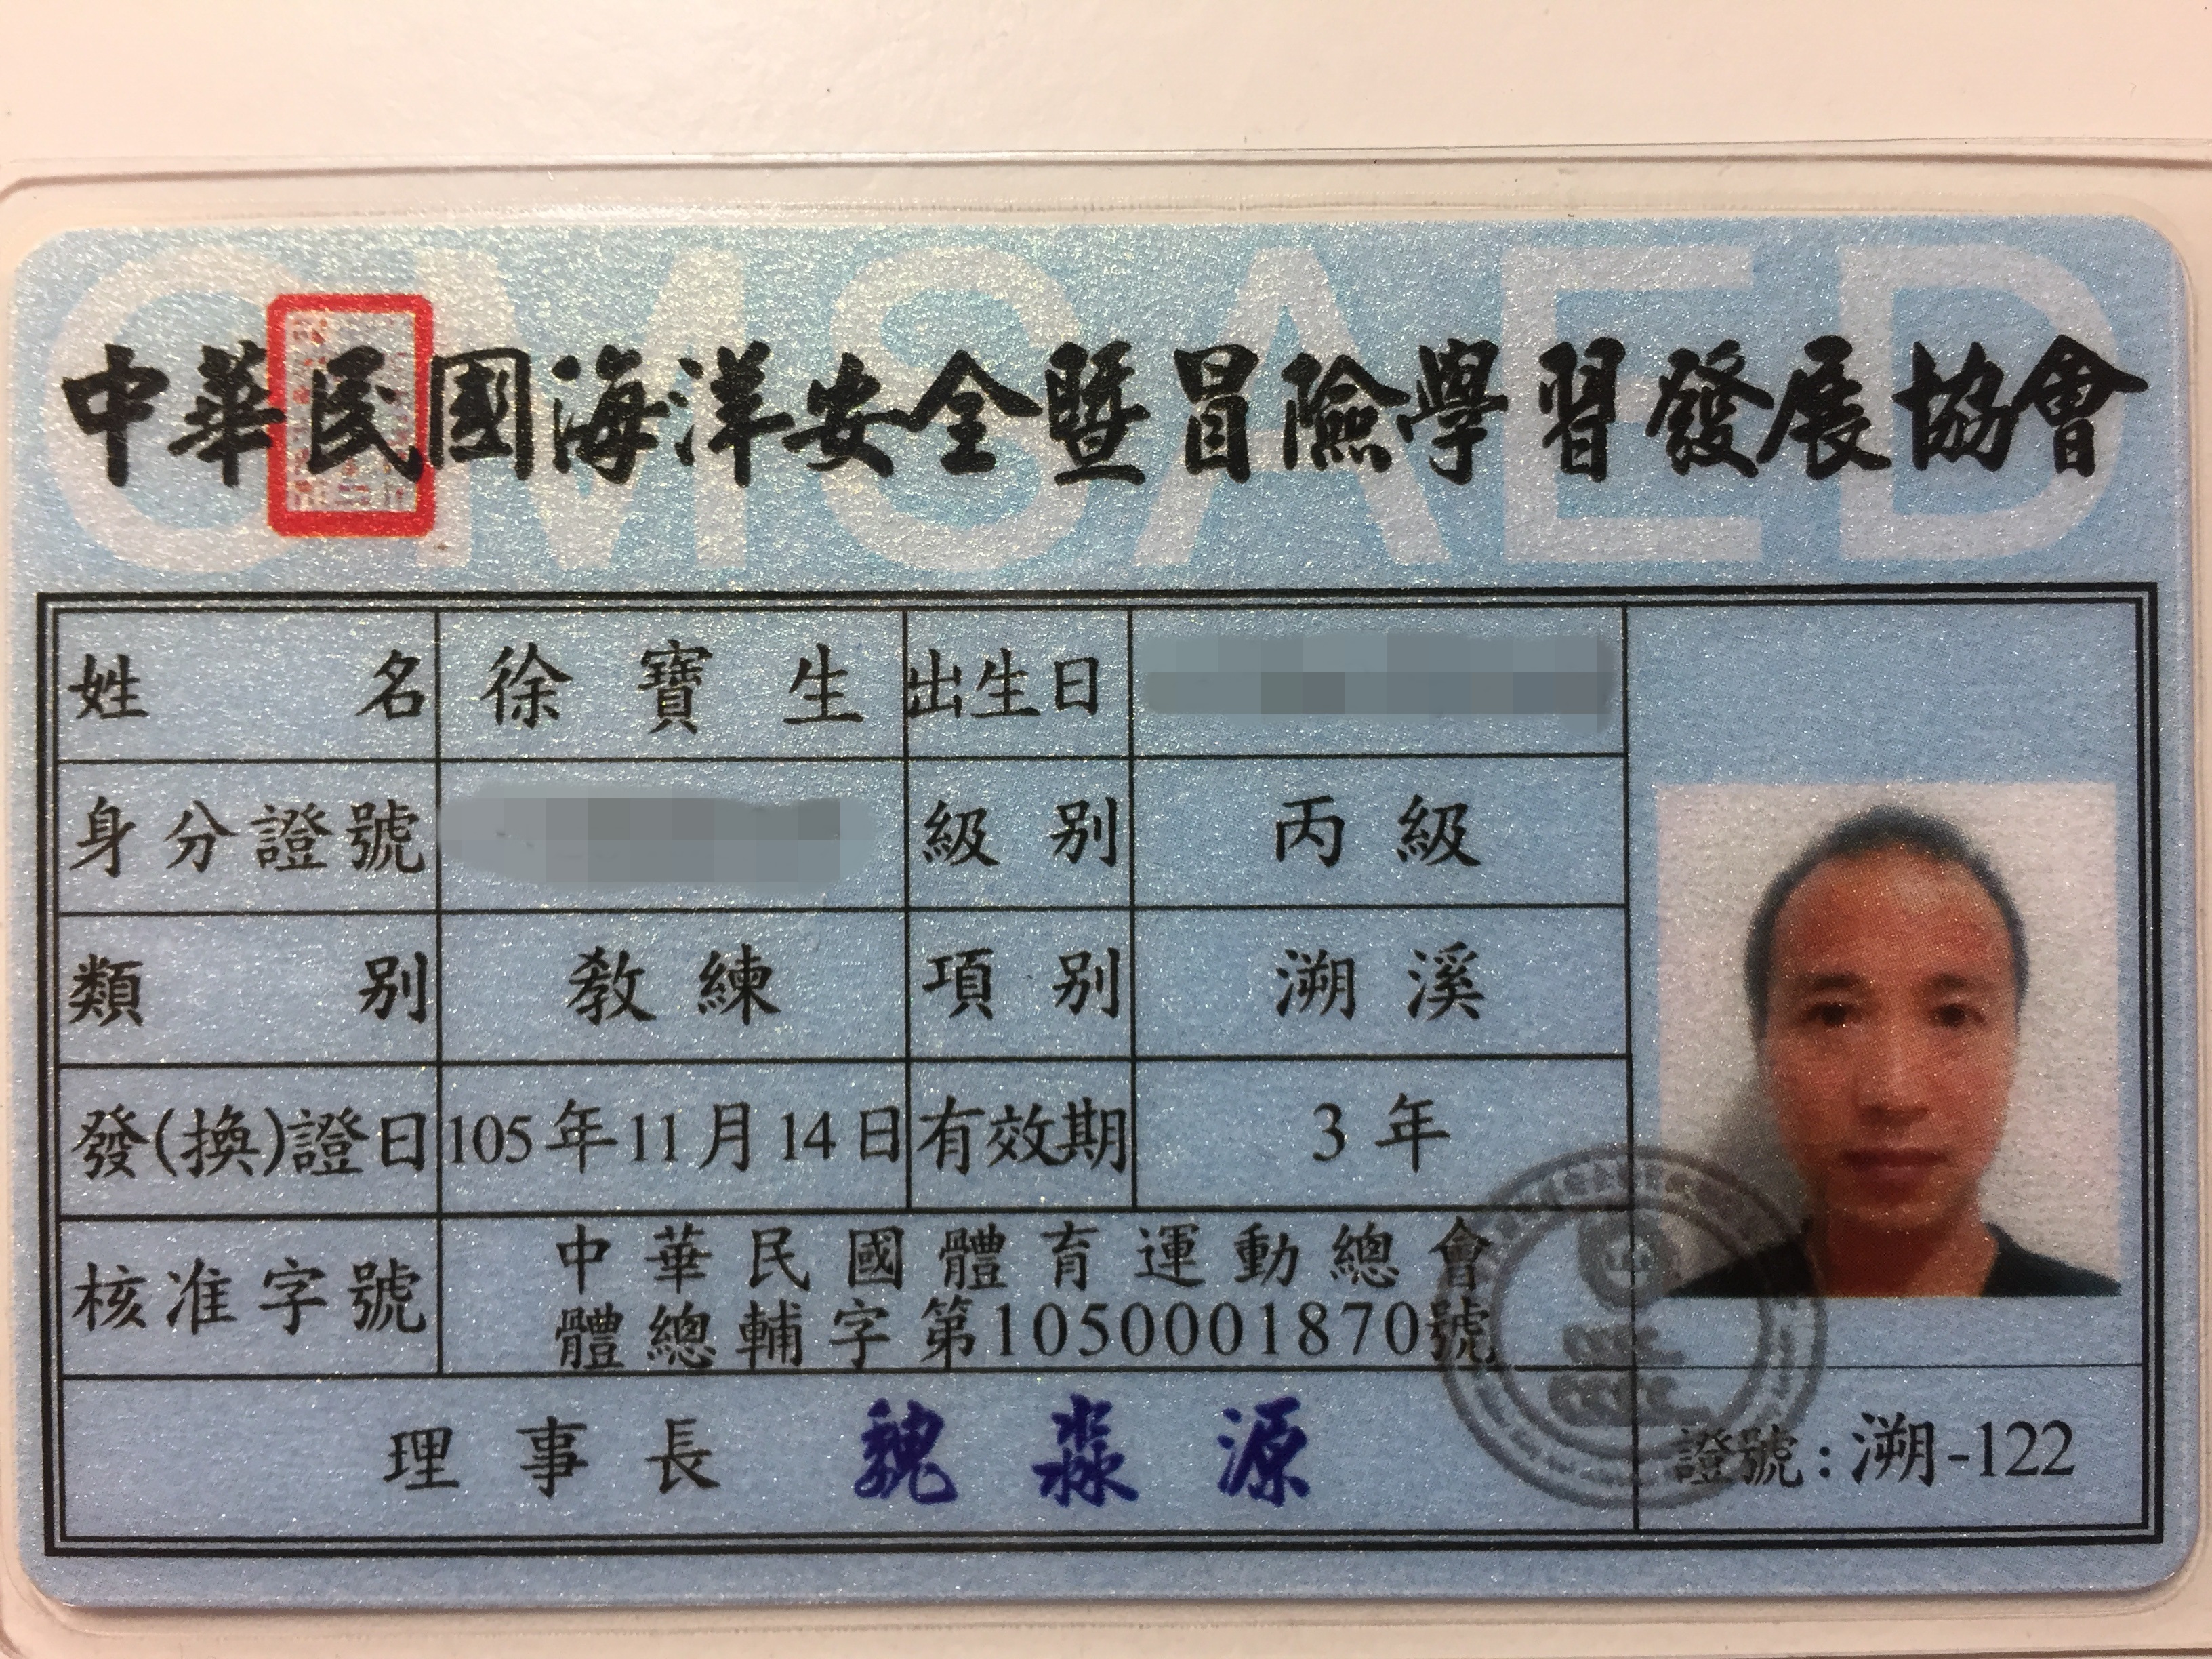 CMSAED
中華民國海洋安全暨冒險學習發展協會
姓名 徐寶生 出生日
身分證號 級別 丙級
類別 教練 項別 溯溪
發(換)證日 105年11月14日 有效期 3年
核准字號 中華民國體育運動總會
體總輔字第1050001870號
理事長 魏淼源 證號:溯-122